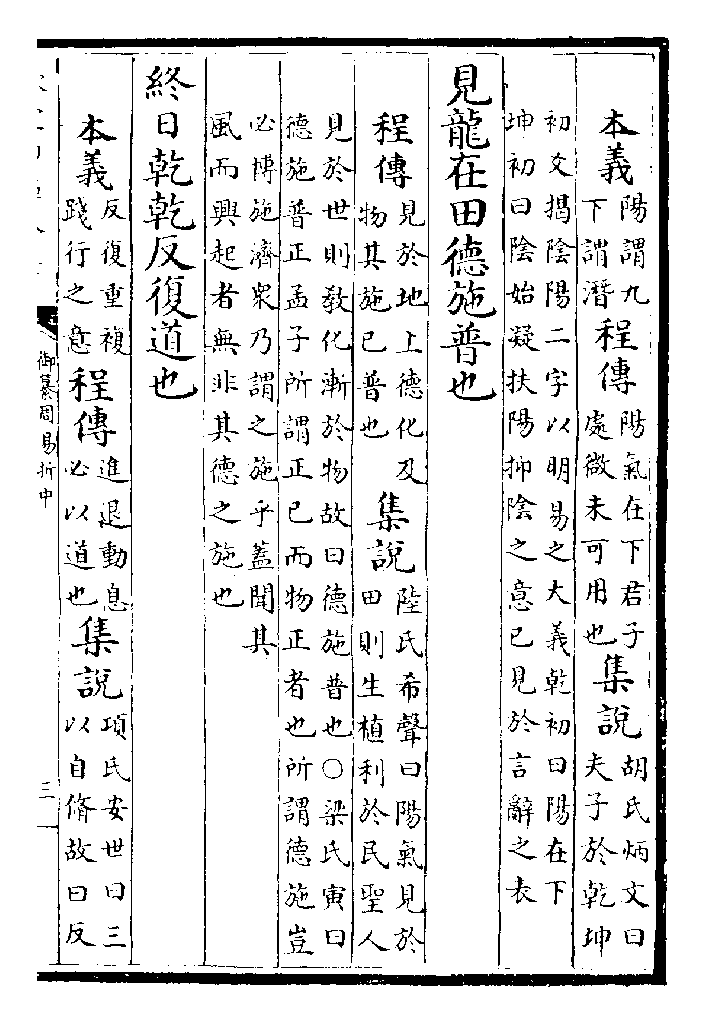 本義陽謂九下謂潛程傳陽氣在下君子處微未可用也集說胡氏炳文曰夫子於乾坤
初爻揭陰陽二字以明易之大義乾初曰陽在下
坤初曰陰始凝扶陽抑陰之意已見於言辭之表
見龍在田德施普也
程傳見於地上德化及物其施已普也集說陸氏希聲曰陽氣見於田則生植利於民聖人
見於世則教化漸於物故曰德施普也○梁氏寅曰
德施普正孟子所謂正已而物正者也所謂德施豈
必博施濟眾乃謂之施乎蓋聞其
風而興起者無非其德之施也
終日乾乾反復道也
本義反復重複踐行之意程傳進退動息必以道也集說項氏安世曰三以自脩故曰反
御纂周易折中
三